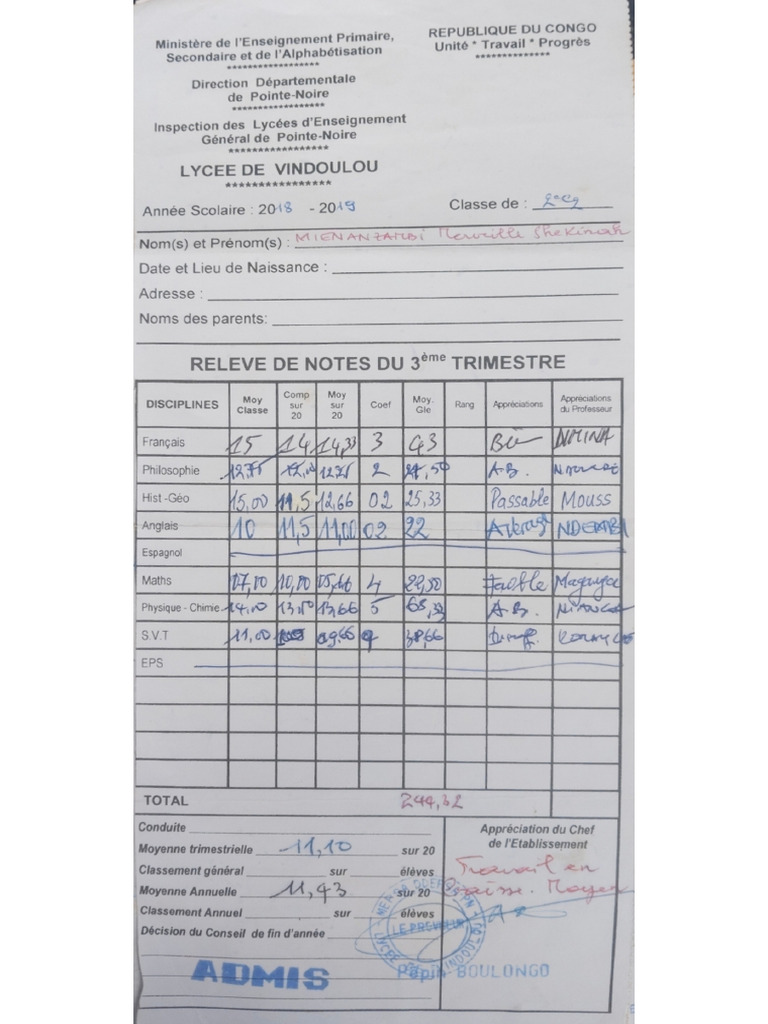 Ministère de l'Enseignement Primaire,
Secondaire et de l'Alphabétisation
******************
Direction Départementale
de Pointe-Noire
******************
Inspection des Lycées d'Enseignement
Général de Pointe-Noire
******************
LYCEE DE VINDOULOU
****************
REPUBLIQUE DU CONGO
Unité * Travail * Progrès
**************
Année Scolaire : 2018 - 2019 Classe de :
Nom(s) et Prénom(s) : MIENANZAMBI Merveille Shekinah
Date et Lieu de Naissance :
Adresse :
Noms des parents:
RELEVE DE NOTES DU 3ème TRIMESTRE
DISCIPLINES Moy Classe Comp sur 20 Moy sur 20 Coef Moy. Gle Rang Appréciations Appréciations du Professeur
Français 15 14 14,33 3 43 NMINA
Philosophie 12,75 12,75 2 A.B.
Hist -Géo 15,00 11,5 12,66 02 25,33 Passable Mouss
Anglais 10 11,5 11,00 02 22 Average
Espagnol
Maths 07,00 4 Faible
Physique - Chimie 14,00 13,50 13,66 5 A.B.
S.V.T 11,00 09,66 38,66
EPS
TOTAL 244,32
Conduite
Moyenne trimestrielle 11,10 sur 20
Classement général sur élèves
Moyenne Annuelle 11,43 sur 20
Classement Annuel sur élèves
Décision du Conseil de fin d'année
ADMIS
Appréciation du Chef
de l'Etablissement
Travail en
LE PROVISEUR
Papin BOULONGO